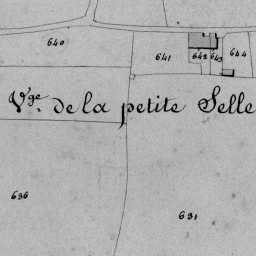 640
641
642
643
644
Vge. de la petite Selle
636
631